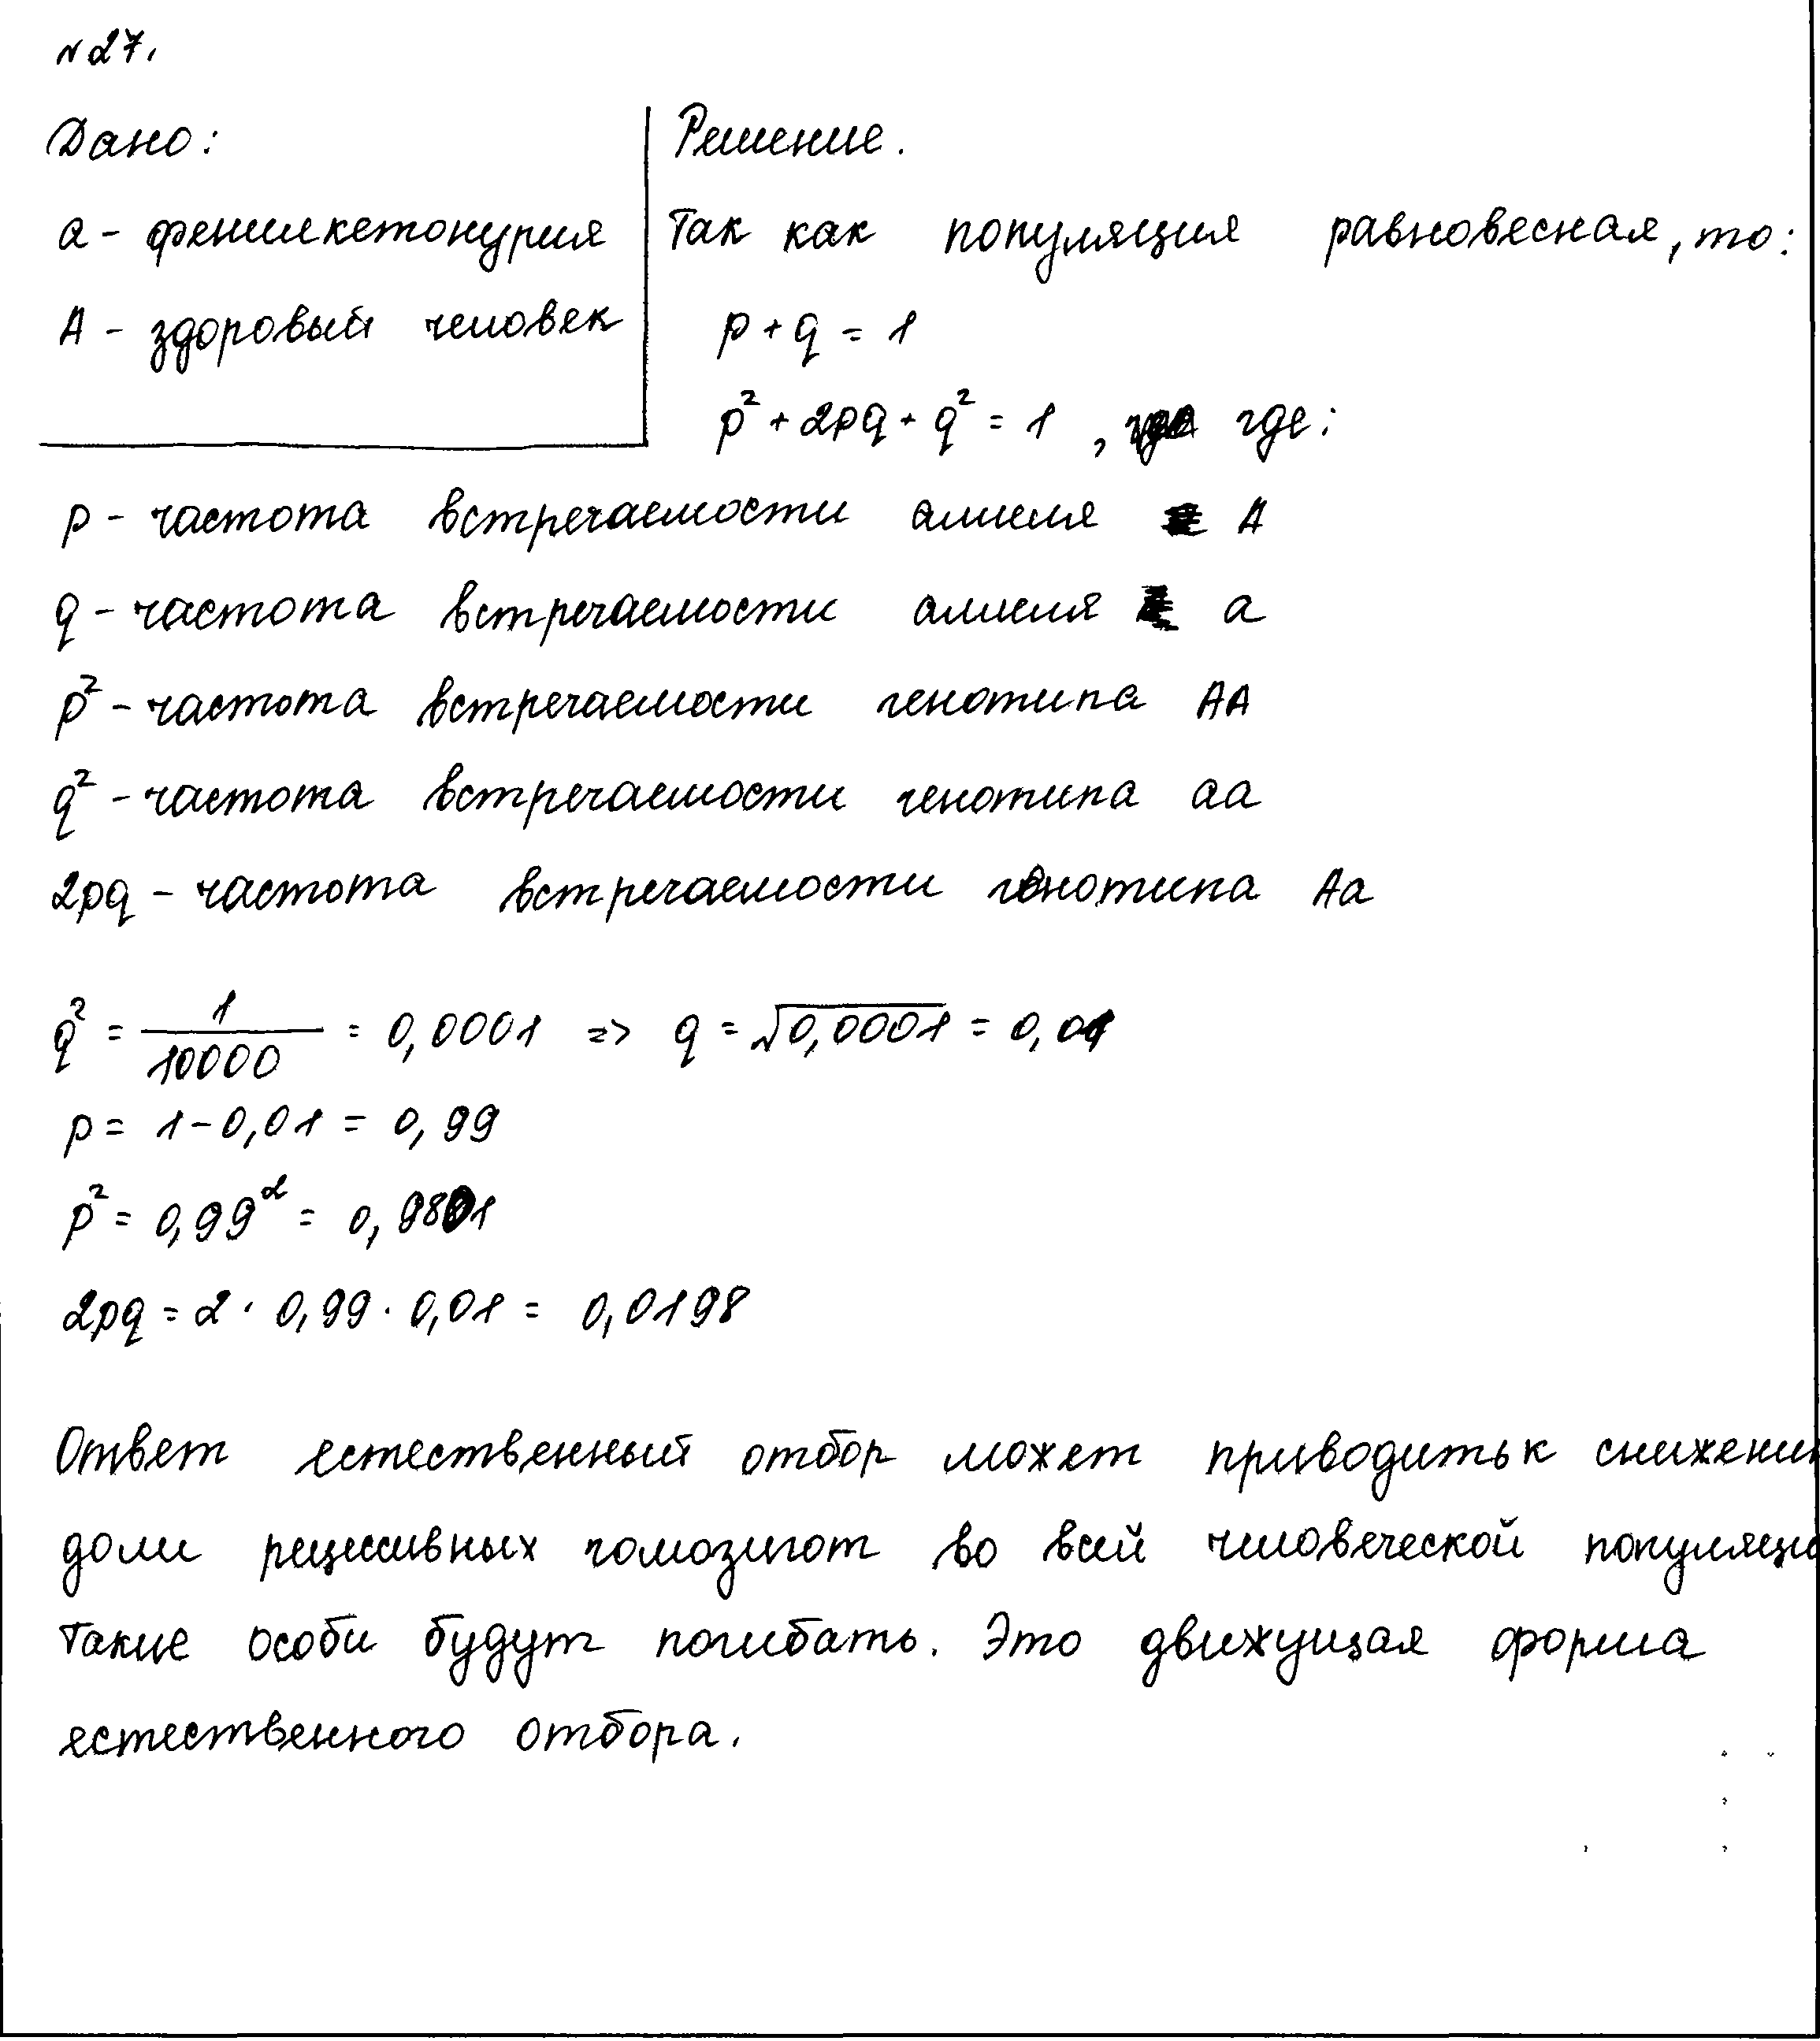 №27.
Дано:
Решение.
a - фенилкетонурия
Так как популяция равновесная, то:
A - здоровый человек
p + q = 1
p² + 2pq + q² = 1 , где:
p - частота встречаемости аллеля A
q - частота встречаемости аллеля a
p² - частота встречаемости генотипа AA
q² - частота встречаемости генотипа aa
2pq - частота встречаемости генотипа Aa
q² = 1/10000 = 0,0001 => q = √0,0001 = 0,01
p = 1 - 0,01 = 0,99
p² = 0,99² = 0,9801
2pq = 2 · 0,99 · 0,01 = 0,0198
Ответ естественный отбор может приводить к снижени
доли рецессивных гомозигот во всей человеческой популяци
Такие особи будут погибать. Это движущая форма
естественного отбора.